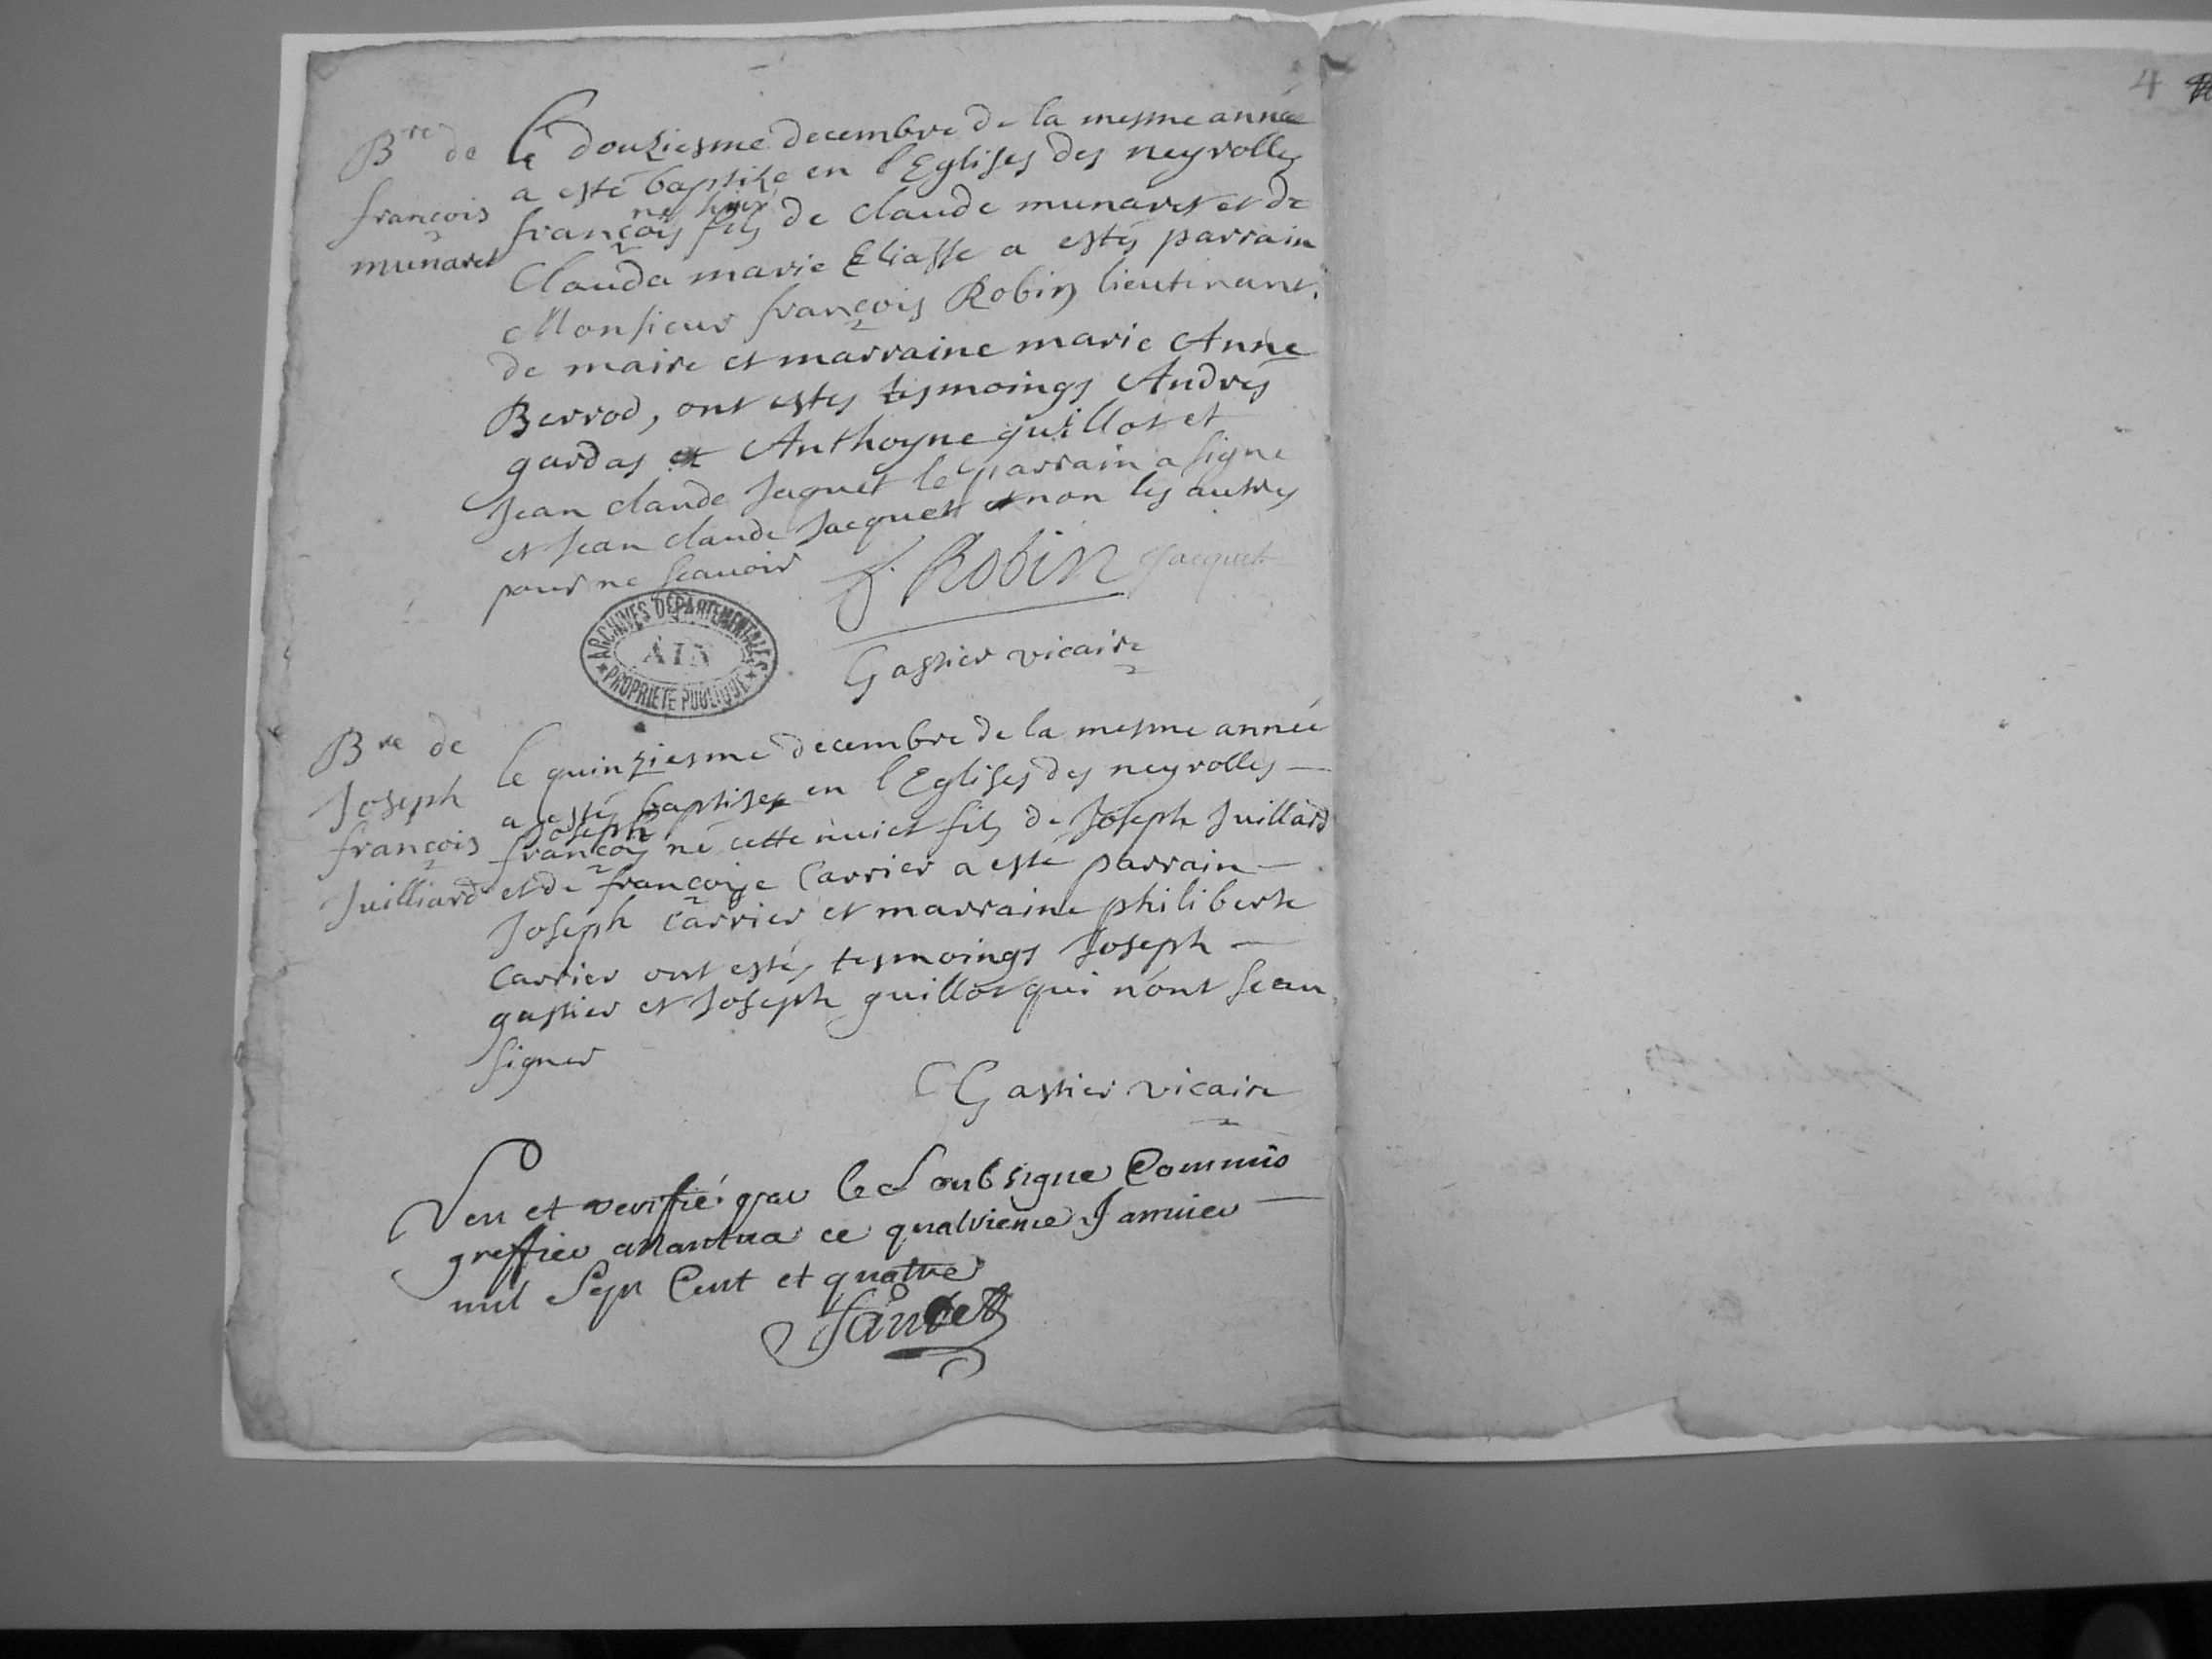 4
Bre de
françois
munaret
Le douziesme decembre de la mesme année
a esté baptise en l'Eglises des neyrolles
né hier
françois fils de Claude munaret et de
Clauda marie Eliasse a estés parrain
Monsieur françois Robin lieutenant
de maire et marraine marie Anne
Berrod, ont estes tesmoings Andres
gardas et Anthoyne guillot et
Jean claude Jaquet le parrain a signe
et Jean claude Jacquet et non les autres
pour ne scauoir
f. Robin Jacquet
ARCHIVES DÉPARTEMENTALES
AIN
PROPRIÉTÉ PUBLIQUE
Gastier vicaire
Bre de
Joseph
françois
Juilliard
le quinziesme decembre de la mesme année
a esté baptises en l'Eglises des neyrolles
Joseph
françois né cette nuict fils de Joseph Juillard
et de françoise Carrier a esté parrain
Joseph Carrier et marraine philiberte
Carrier ont estés tesmoings Joseph
gastier et Joseph guillot qui n'ont sceau
signer
Gastier vicaire
Veu et verifié par le Soubsigne Commis
greffier a Nantua ce quatrieme Januier
mil Sept Cent et quatre